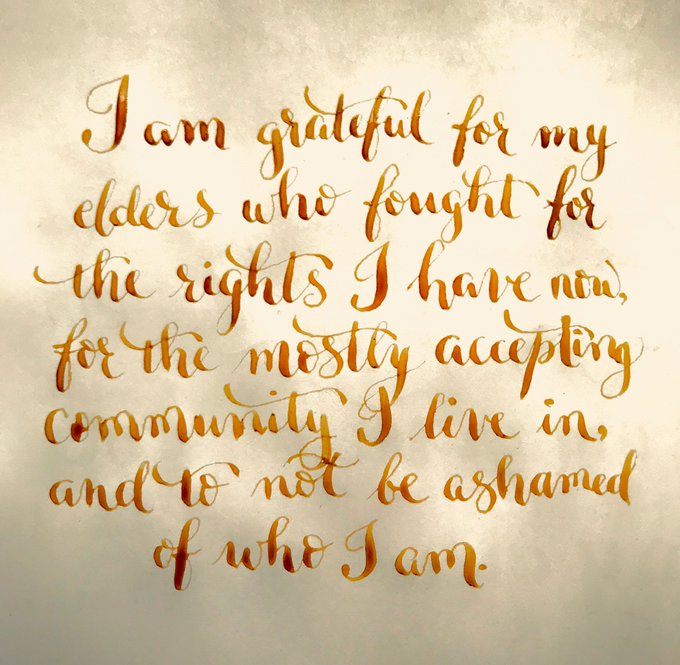 I am grateful for my
elders who fought for
the rights I have now,
for the mostly accepting
community I live in,
and to not be ashamed
of who I am.